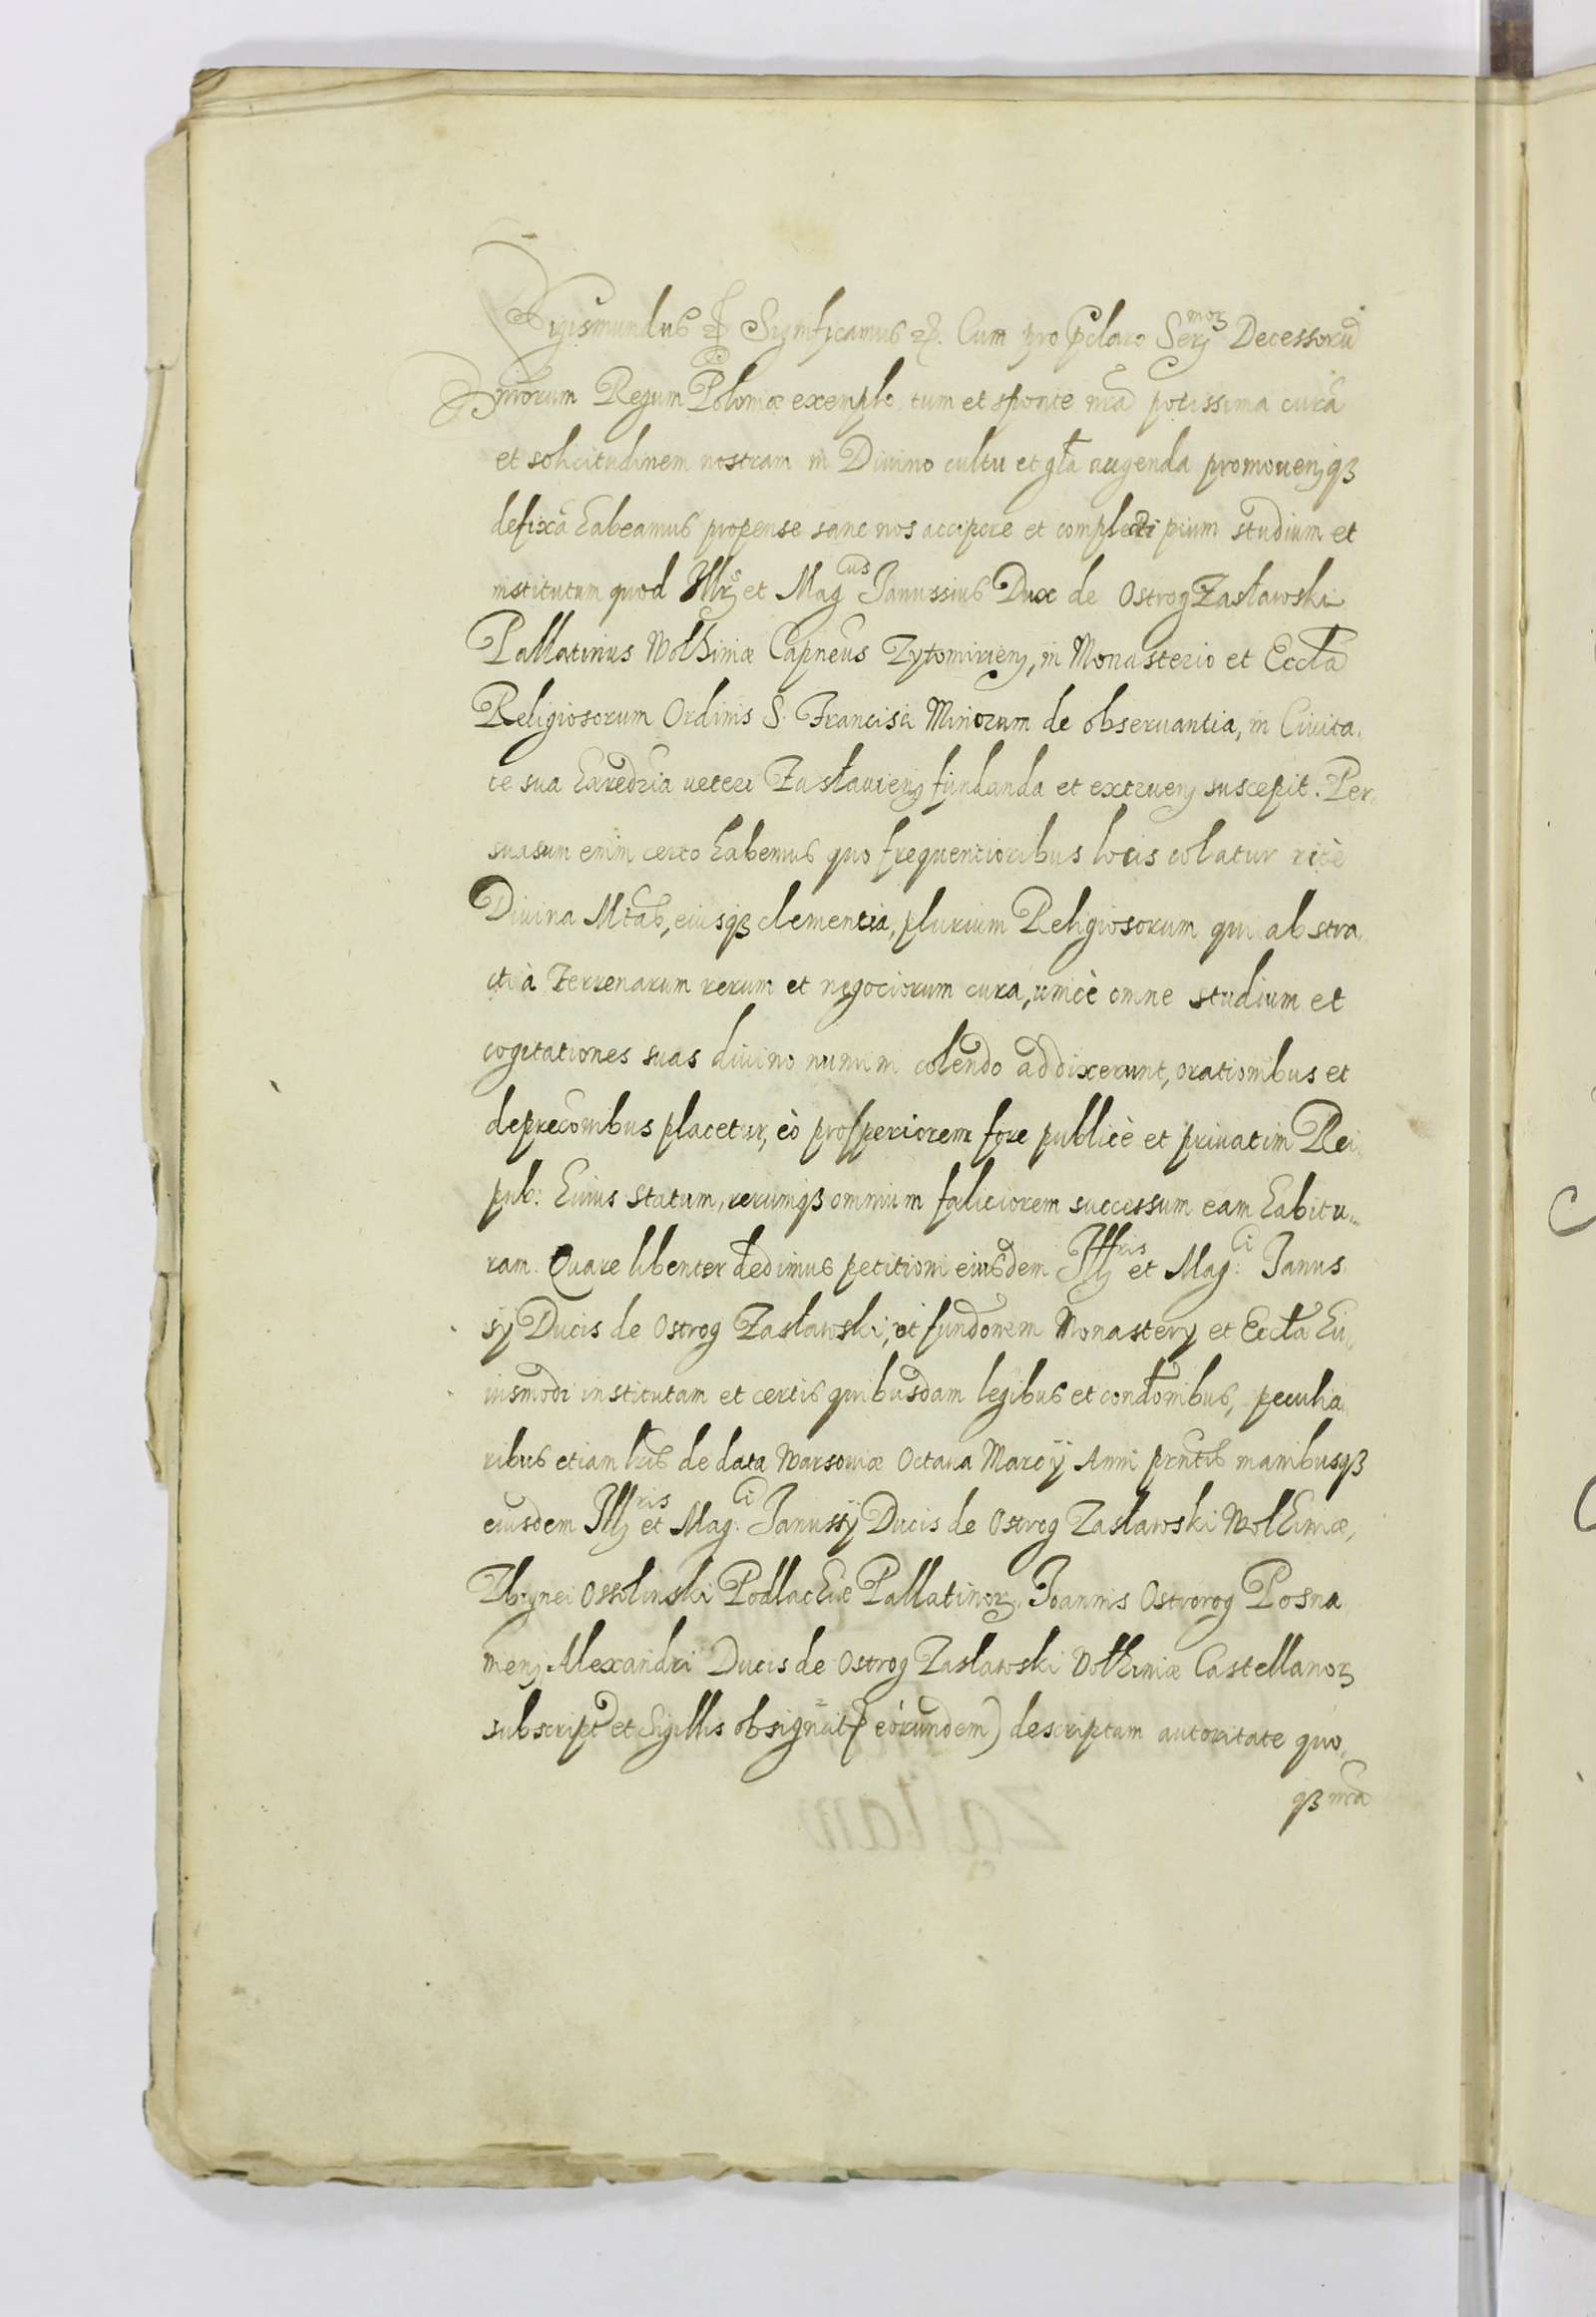 Sigismundus etc Significamus etc. Cum pro pclaro Sermor Decessorũ
Nrorum Regum Poloniæ exemplo, tum et sponte nrã potissima curã
et solicitudinem nostram in Diuino cultu et gła augenda promouenqꝫ
defixã habeamus propense sane nos accipere et complecti pium studium et
institutum quod Illrs et Magcus Janussius Dux de Ostrog Zasławski
Pallatinus Wolhiniæ Capneus Zytomirien, in Monasterio et Eccła
Religiosorum Ordinis S. Francisci Minorum de obseruantia, in Ciuita,
te sua hæredria veteri Zasłauien fundanda et extruen suscepit. Per,
suasum enim certo habemus quo frequentioribus locis colatur ritè
Diuina Mtas, eiusqꝫ clementia, plurium Religiosorum qui abstra,
cti à Terrenarum rerum et negociorum cura, unicè omne studium et
cogitationes suas diuino numini colendo addixerunt, orationibus et
deprecõnibus placetur, eò prosperiorem fore publicè et priuatim Rei,
pub: huius statum, rerumqꝫ omnium fæliciorem successum eam habitu,,
ram. Quare libenter dedimus petitioni eiusdem Illris et Mag:ci Janus
sy Ducis de Ostrog Zasławski, ut fundõnem Monastery et Eccła hu,,
iusmodi institutam et certis quibusdam legibus et conditõnibus, peculia,
ribus etiam lris de data Warsouiæ Octaua Marcÿ Anni prntis manibusqꝫ
eiusdem Illris et Mag.ci Janussÿ Ducis de Ostrog Zasławski Wolhiniæ,
Zbignei Ossolinski Podlachiæ Pallatinor, Joannis Ostrorog Posna
nien, Alexandri Ducis de Ostrog Zasławski Wolhiniæ Castellanor
subscript et Sigillis obsignat (eorundem) descriptam autoritate quo,
qꝫ nrã